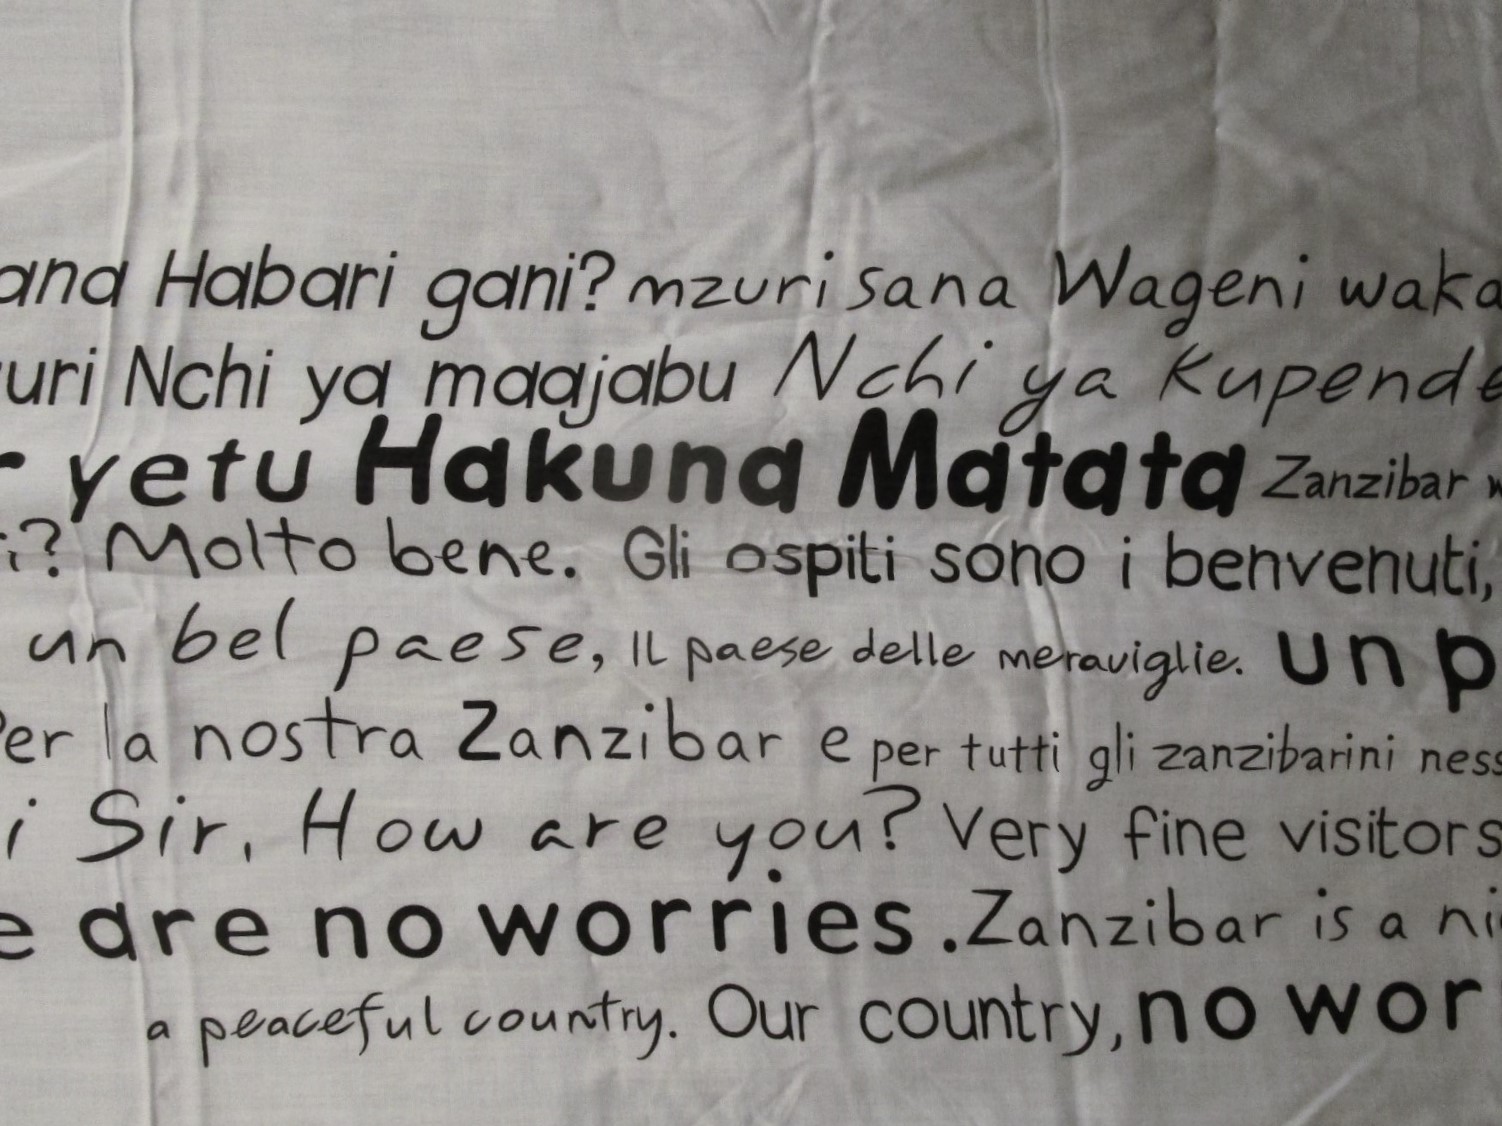 ana Habari gani? mzuri sana Wageni waka
uri Nchi ya maajabu Nchi ya Kupende
r yetu Hakuna Matata Zanzibar w
i? Molto bene. Gli ospiti sono i benvenuti,
un bel paese, Il paese delle meraviglie. un p
Per la nostra Zanzibar e per tutti gli zanzibarini ness
i Sir, How are you? Very fine visitors
e are no worries. Zanzibar is a ni
a peaceful country. Our country, no wor